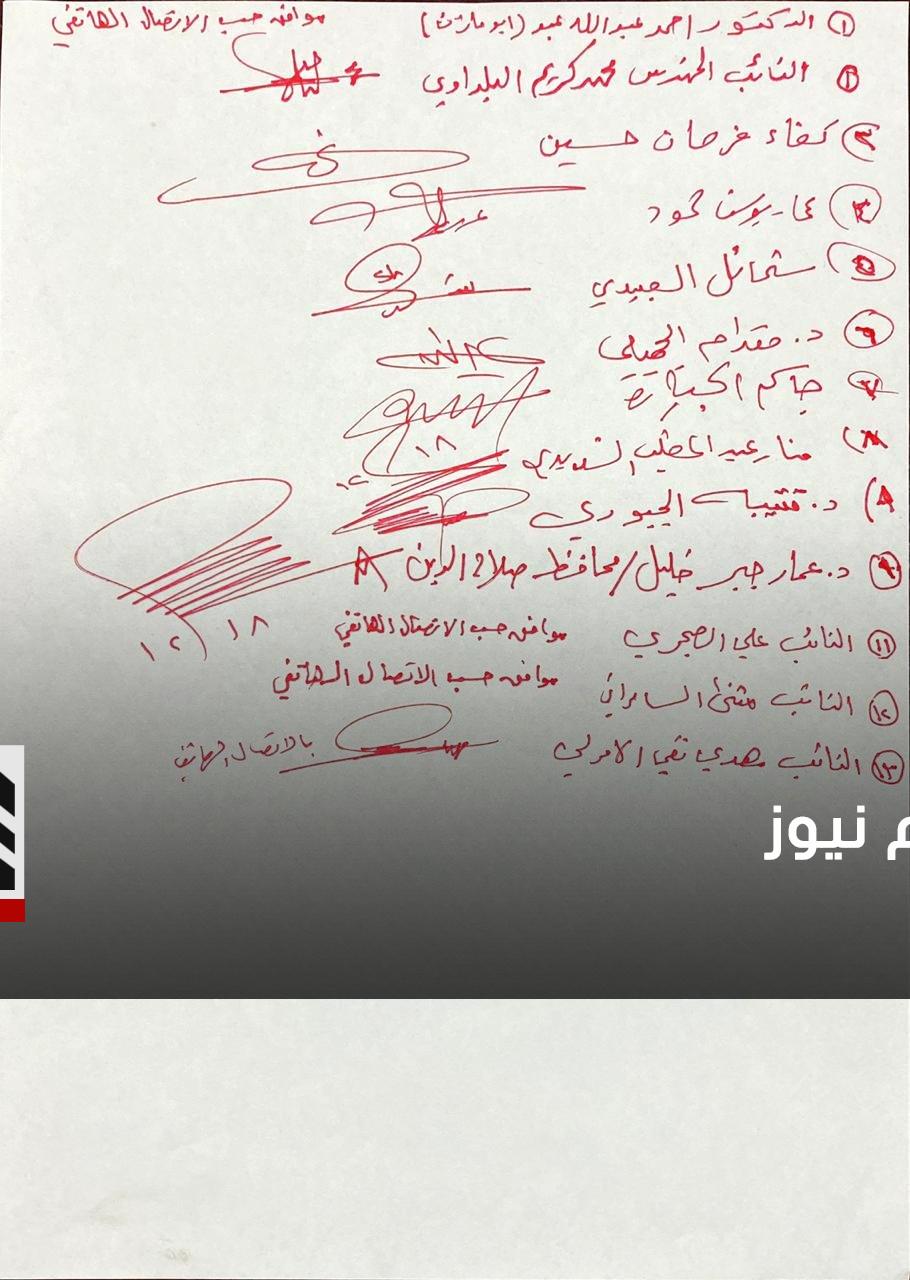 ١ الدكتور احمد عبدالله عبد (ابو مازن) موافق حسب الاتصال الهاتفي
٢ النائب المهندس محمد كريم البلداوي
٣ كفاء فرحان حسين
٤ عمار يوسف حمود
٥ شمائل العبيدي
٦ د. مقدام الجميلي
٧ جاسم الجبارة
منار عبد المطلب الشديدي
١٨
١٢
٨ د. قتيبة الجبوري
٩ د. عمار جبر خليل/محافظ صلاح الدين
١٨ / ١٢
١١ النائب علي الصجري موافق حسب الاتصال الهاتفي
١٢ النائب مثنى السامرائي موافق حسب الاتصال الهاتفي
١٣ النائب مهدي تقي الامرلي بالاتصال الهاتفي
م نيوز